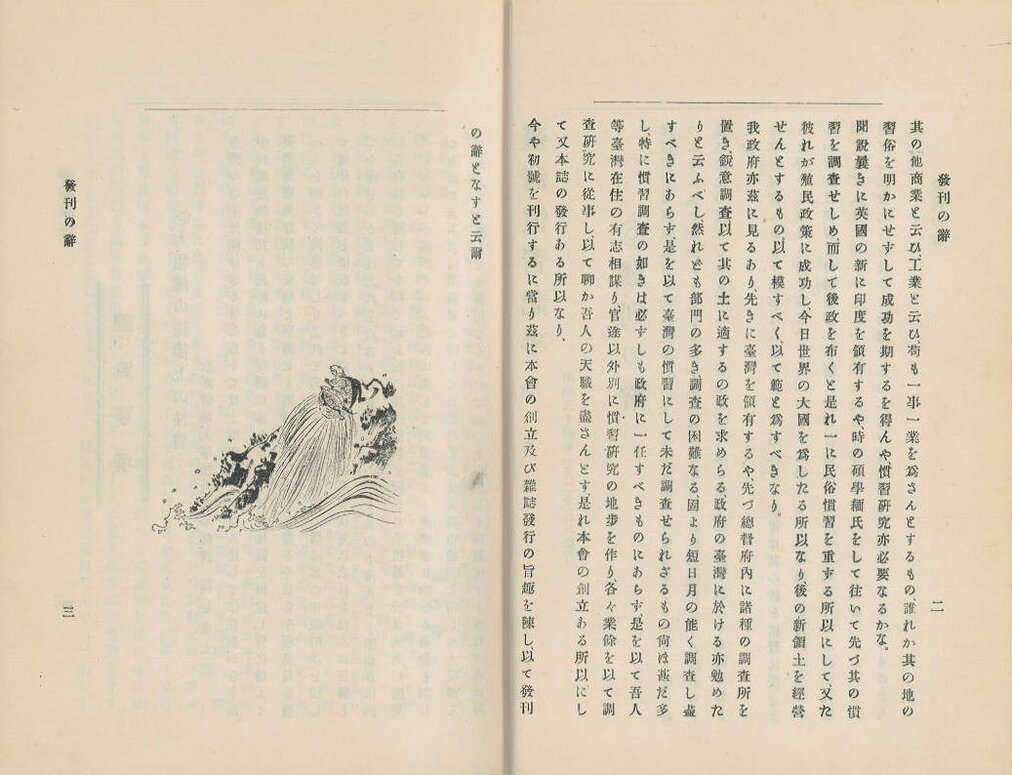 發刊の辭
二
其の他商業と云ひ、工業と云ひ、苟も一事一業を爲さんとするもの、誰れか其の地の
習俗を明かにせずして成功を期するを得んや、慣習研究亦必要なるかな。
聞説曩きに英國の新に印度を領有するや、時の碩學緬氏をして往いて先づ其の慣
習を調査せしめ、而して後政を布くと是れ一に民俗慣習を重する所以にして、又た
彼れが殖民政策に成功し今日世界の大國を爲したる所以なり、後の新領土を經營
せんとするもの以て模すべく、以て範と爲すべきなり。
我政府亦玆に見るあり、先きに臺灣を領有するや、先づ總督府內に諸種の調查所を
置き、鋭意調査、以て其の土に適するの政を求めらる政府の臺灣に於ける亦勉めた
りと云ふべし、然れども部門の多き、調査の困難なる、固より短日月の能く調査し盡
すべきにあらす是を以て臺灣の慣習にして未だ調査せられざるもの尙ほ甚だ多
し、特に慣習調査の如きは必ずしも政府に一任すべきものにあらす、是を以て吾人
等臺灣在住の有志相謀り、官途以外別に慣習研究の地步を作り、各々業餘を以て調
査研究に從事し、以て聊か吾人の天職を盡さんとす是れ本會の創立ある所以にし
て又本誌の發行ある所以なり、
今や初號を刊行するに當り玆に本會の創立及び雜誌發行の旨趣を陳し、以て發刊
の辭となすと云爾
發刊の辭
三